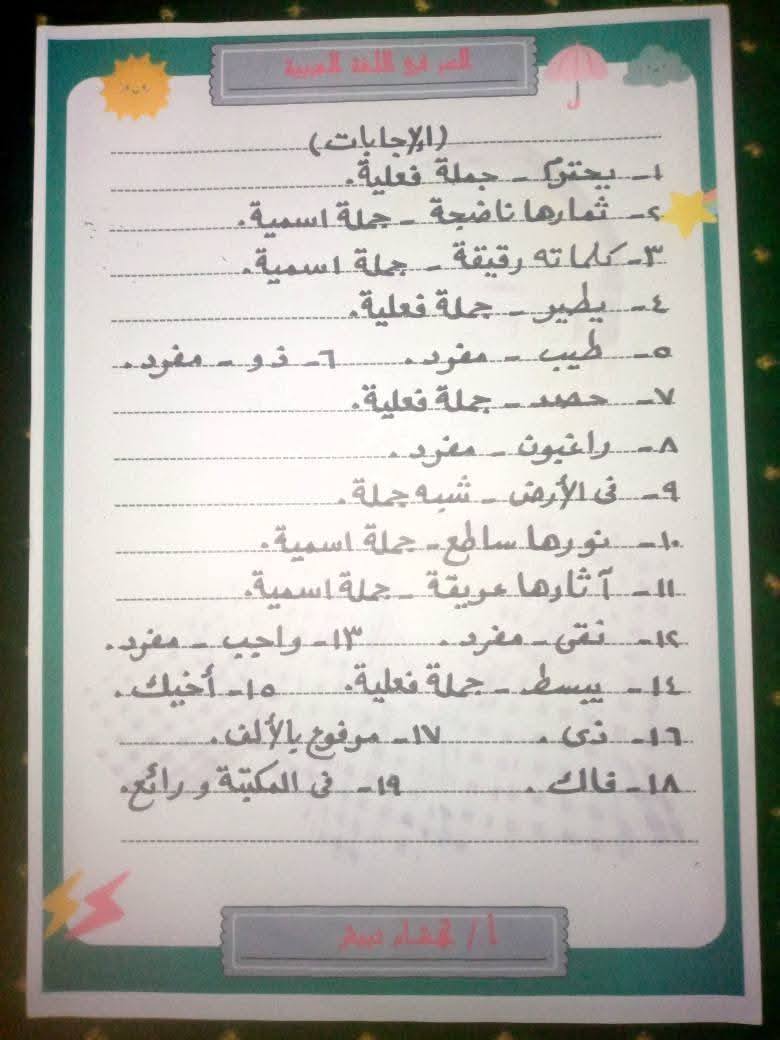 السر في اللغة العربية
(الإجابات)
١- يحترم - جملة فعلية.
٢- ثمارها ناضجة - جملة اسمية.
٣- كلماته رقيقة - جملة اسمية.
٤- يطير - جملة فعلية.
٥- طيب - مفرد. ٦- ذو - مفرد.
٧- حصد - جملة فعلية.
٨- راغبون - مفرد.
٩- فى الأرض - شبه جملة.
١٠- نورها ساطع - جملة اسمية.
١١- آثارها عريقة - جملة اسمية.
١٢- نقى - مفرد. ١٣- واجب - مفرد.
١٤- يبسط - جملة فعلية. ١٥- أخيك.
١٦- ذى. ١٧- مرفوع بالألف.
١٨- فاك. ١٩- فى المكتبة و رائع.
أ /